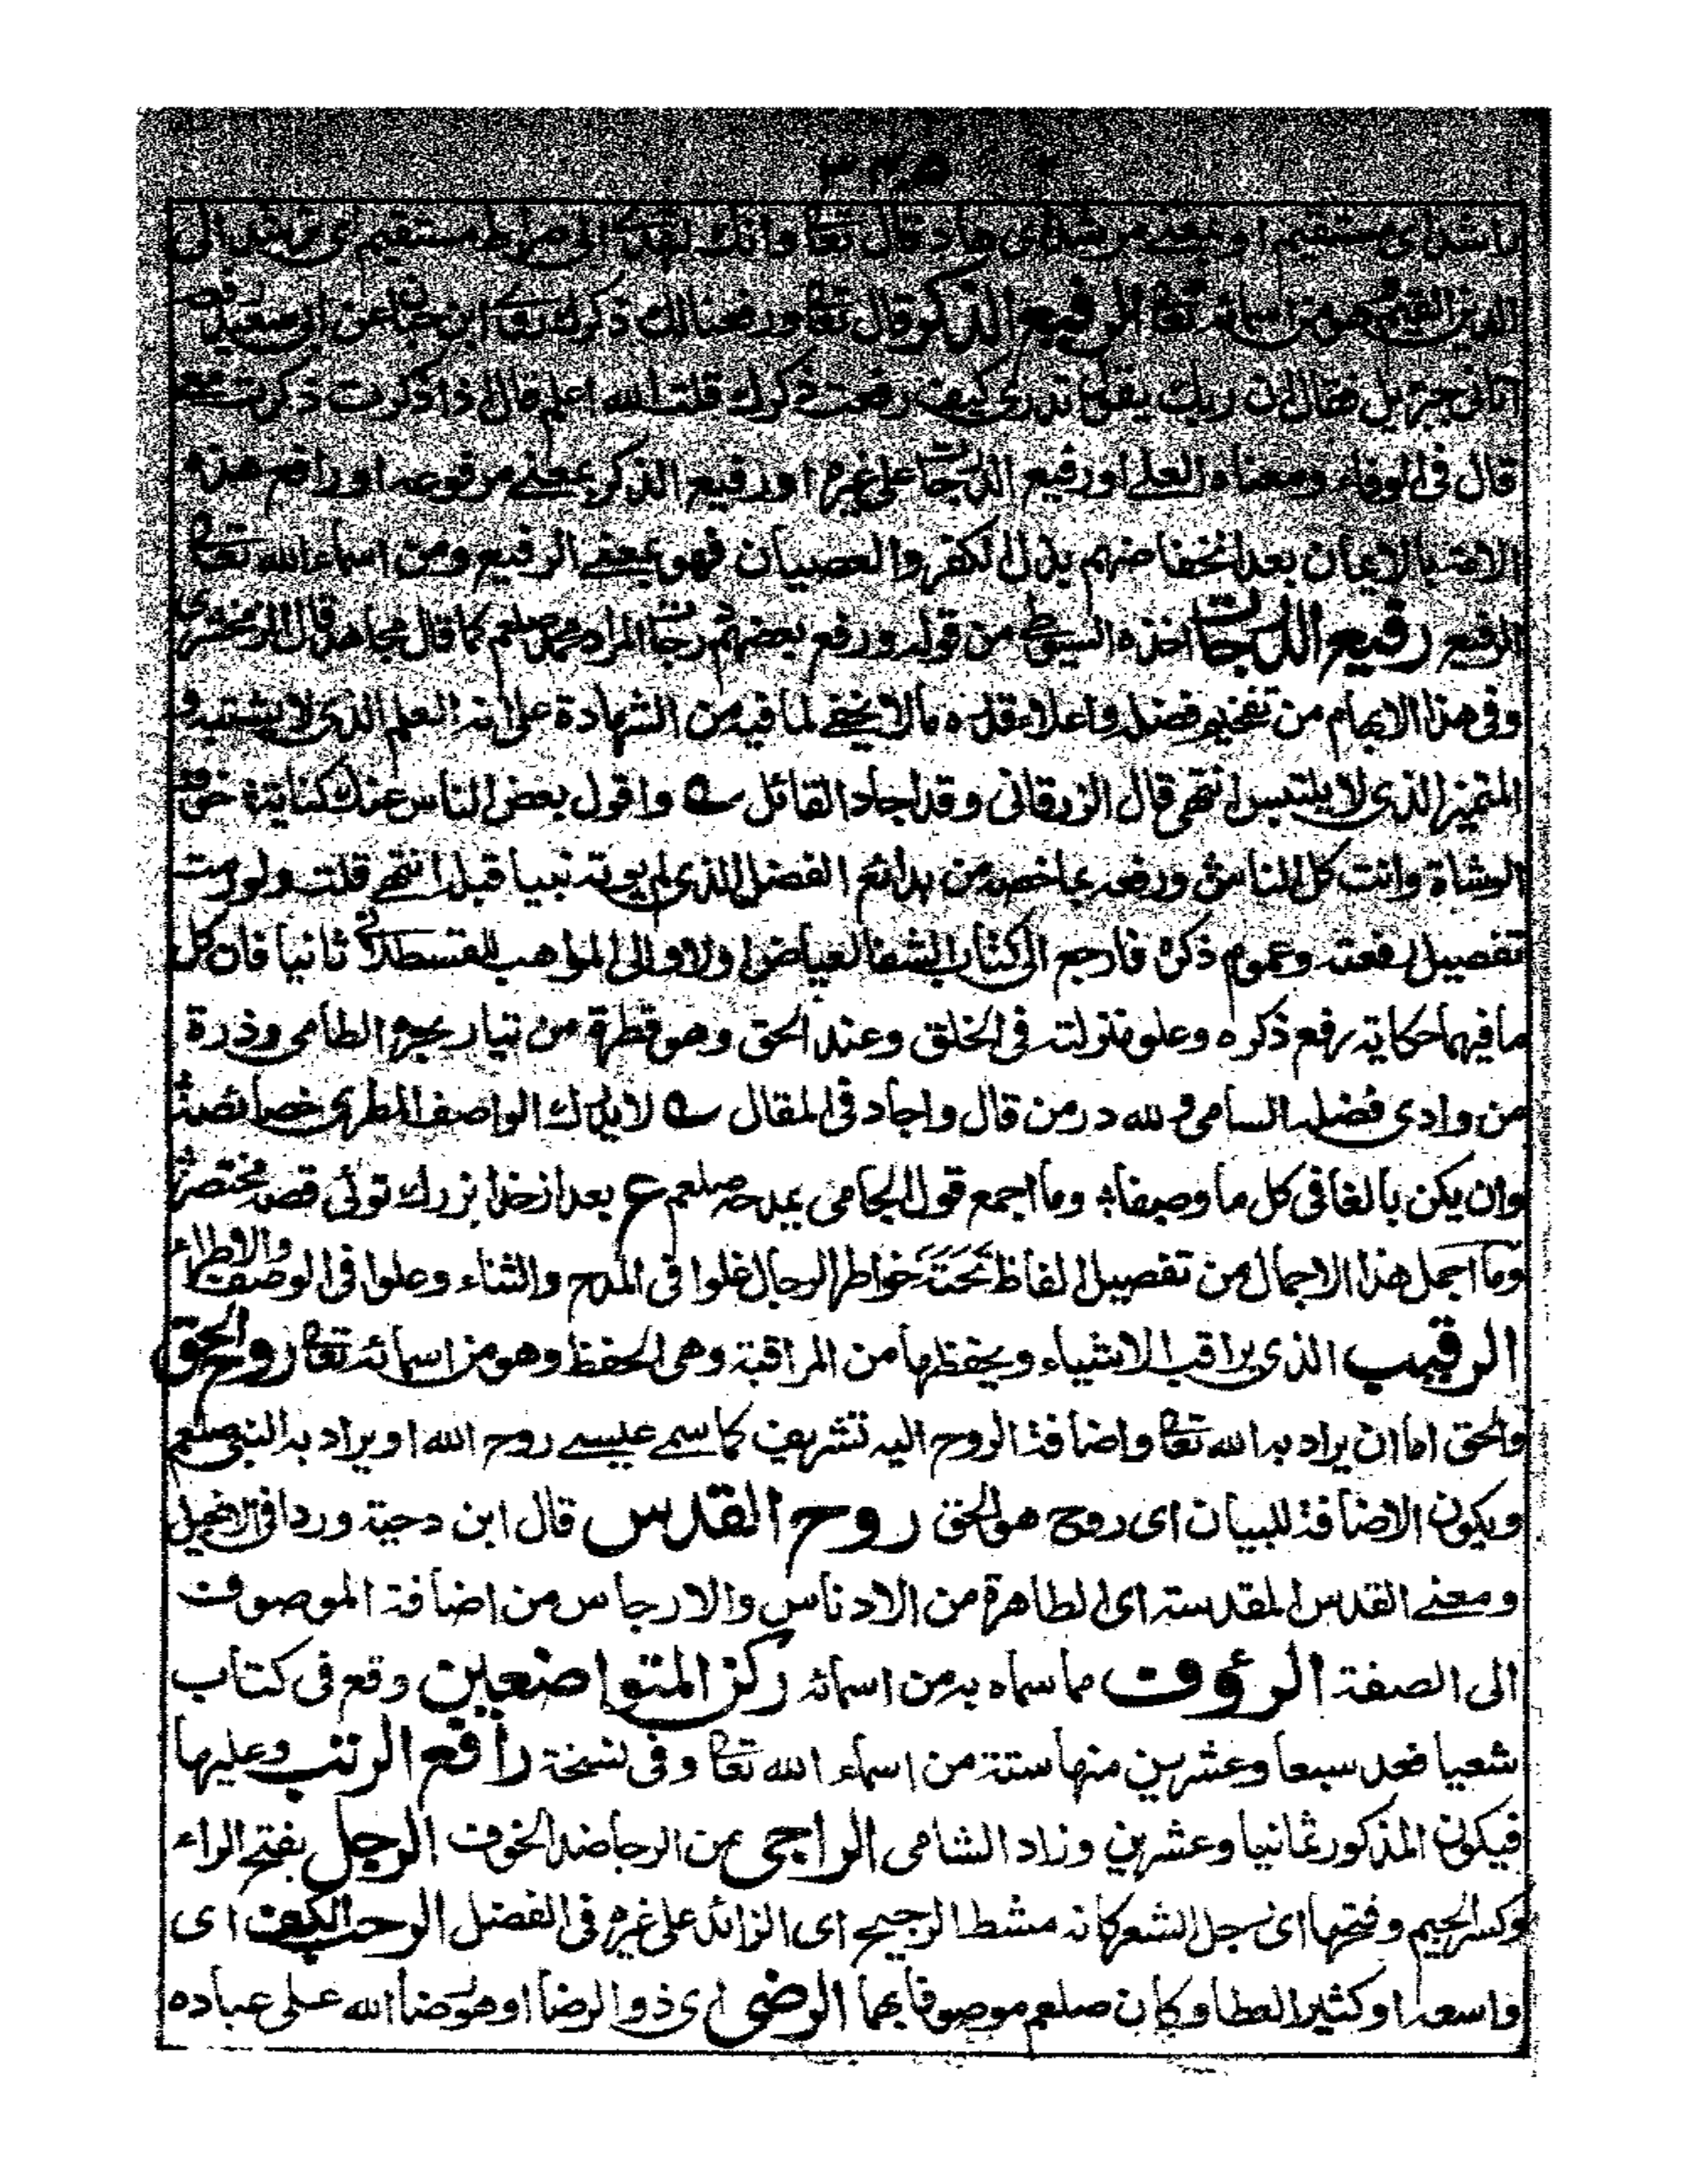 ٣٣٥
راشد اى مستقيم او بمعنى مرشد اى هاد قال تعا وانك لتهدى الى صراط مستقيم اى ترشد الى
الدين القيم هو من اسمائه تعا الرفيع الذكر قال تعا ورفعنالك ذكرك روى ابن حبا عن ابى سعيد
اتانى جبريل فقال ان ربك يقول تدرى كيف رفعت ذكرك قلت الله اعلم قال اذا ذكرت ذكرت معى
قال فى الوفاء ومعناه العلى او رفيع الدرجات على غيره او رفيع الذكر بمعنى مرفوعه او رافع هذه
الامة بالايمان بعد انخفاضهم بذل الكفر والعصيان فهو بمعنى الرفيع ومن اسماء الله تعا
الرفيع رفيع الدرجات اخذه السيوطى من قوله ورفع بعضهم درجات المراد محمد صلعم كما قال مجاهد قال الزمخشرى
وفى هذا الابهام من تفخيم فضله واعلاء قدره مالا يخفى لما فيه من الشهادة على انه العلم الذى لا يشتبه و
المتميز الذى لا يلتبس انتهى قال الزرقانى وقد اجاد القائل ؎ واقول بعض الناس عنك كناية خوف
الوشاة وانت كل الناس ورفعه بما خص من بدائع الفضل الذى لم يوته نبيا قبله انتهى قلت ولو رمت
تفصيل رفعته وعموم ذكره فارجع الى كتاب الشفا لعياض اولا والى المواهب للقسطلانى ثانيا فان كل
ما فيهما حكاية رفع ذكره وعلو منزلته فى الخلق وعند الحق وهو قطرة من تيار بحره الطامى وذرة
من وادى فضله السامى ولله در من قال واجاد فى المقال ؎ لا يدرك الواصف المطرى خصائصه
وان يكن بالغا فى كل ما وصفا وما اجمع قول الجامى بمدحه صلعم ع بعد از خدا بزرك توئى قصه مختصر
وما اجمل هذا الاجمال من تفصيل الفاظ نحتته خواطر الرجال غلوا فى المدح والثناء وعلوا فى الوصف والاطراء
الرقيب الذى يراقب الاشياء ويحفظها من المراقبة وهى الحفظ وهو من اسمائه تعا روح الحق
والحق اما ان يراد به الله تعا واضافة الروح اليه تشريف كما سمى عيسى روح الله او يراد به النبى صلعم
ويكون الاضافة للبيان اى روح هو الحق روح القدس قال ابن دحية وردا فى الانجيل
ومعنى القدس المقدسة اى الطاهرة من الادناس والارجاس من اضافة الموصوف
الى الصفة الرؤف مما سماه به من اسمائه ركن المتواضعين وقع فى كتاب
شعيا فعد سبعا وعشرين منها ستة من اسماء الله تعا وفى نسخة رافع الرتب وعليها
فيكون المذكور ثمانيا وعشرين وزاد الشامى الراجى من الرجا ضد الخوف الرجل بفتح الراء
وكسر الجيم وفتحها اى رجل الشعر كانه مشط الرجيح اى الزائد على غيره فى الفضل الرحب الكف اى
واسعه او كثير العطا وكان صلعم موصوفا بهما الرضى اى ذو الرضا او هو رضا الله على عباده